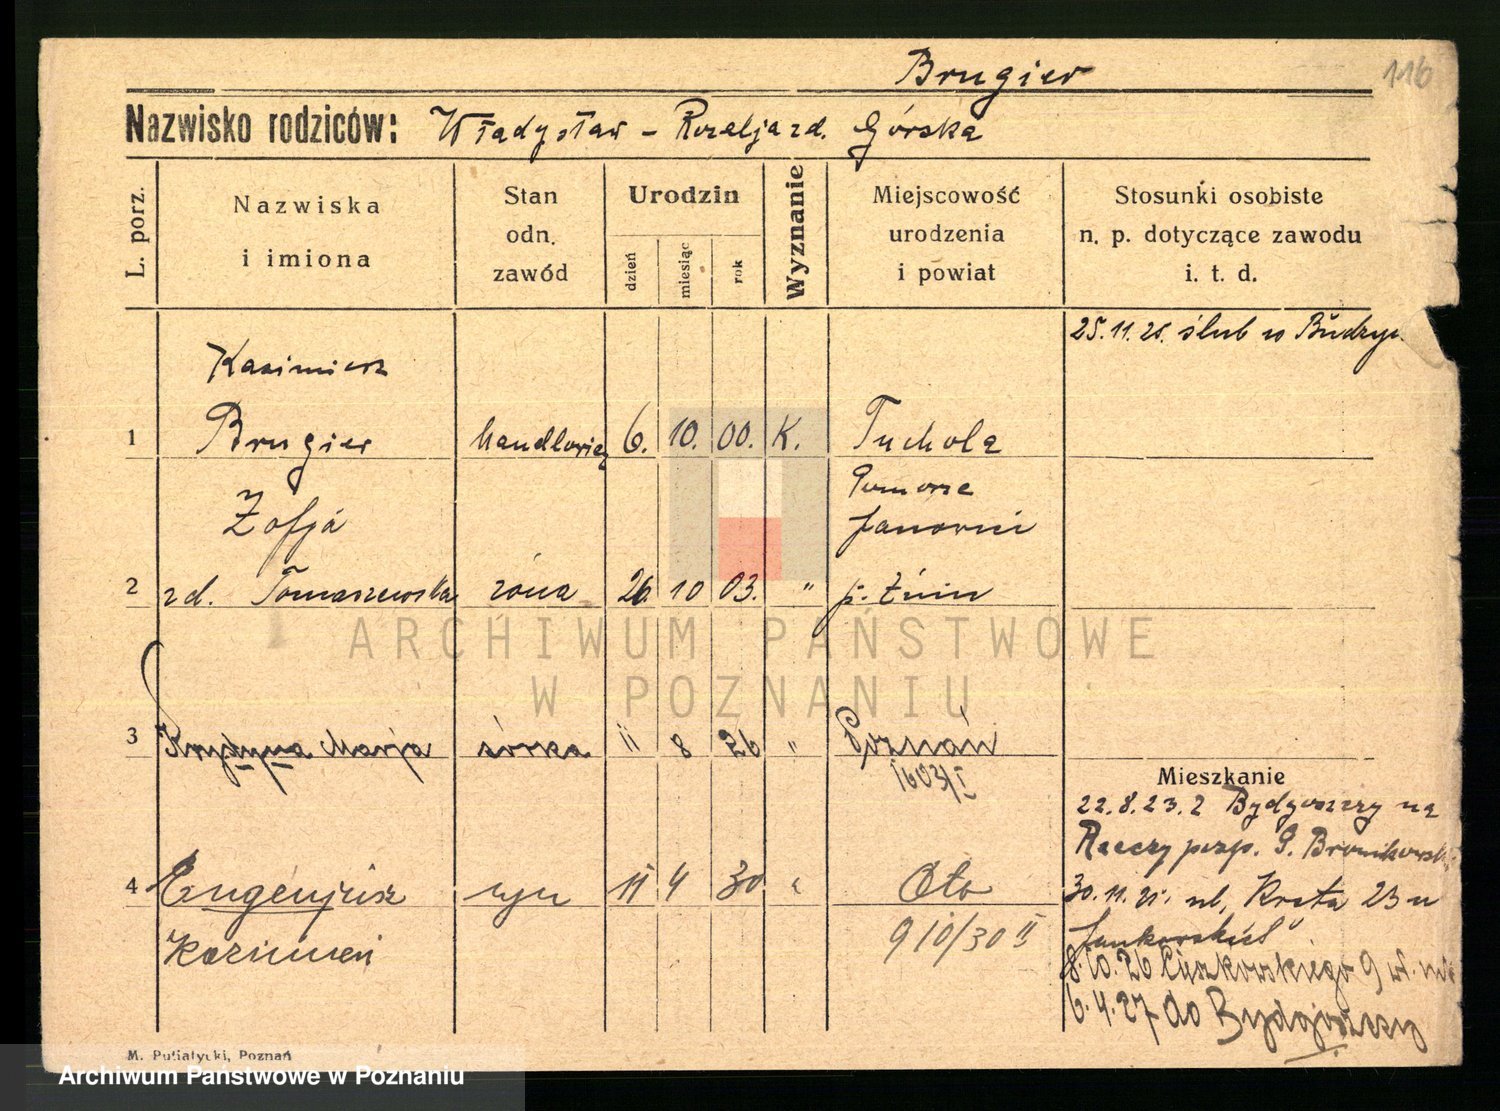 Brugier 116
Nazwisko rodziców: Władysław – Rozalja zd. Górska
L. porz.
Nazwiska
i imiona
Stan
odn.
zawód
Urodzin
dzień
miesiąc
rok
Wyznanie
Miejscowość
urodzenia
i powiat
Stosunki osobiste
n. p. dotyczące zawodu
i. t. d.
25.11.25. ślub w
Kazimierz
1 Brugier handlowiec 6. 10. 00. K. Tuchola
Pomorze
Zofja Janowiec
2 zd. Tomaszewska żona 26 10 03. " p. Żnin
ARCHIWUM PAŃSTWOWE
W POZNANIU
3 Krystyna Marja córka 11 8 26 " Poznań
1603/I
Mieszkanie
22.8.23. z Bydgoszczy na
P. Bronikowsk
4 Eugenjusz syn 11 4 30 "
30.11.25. ul. Kręta 23 u
Kazimierz 910/30 II
Jankowskich
8.10.26 9
6.4.27 do Bydgoszczy
M. Putiatycki, Poznań
Archiwum Państwowe w Poznaniu